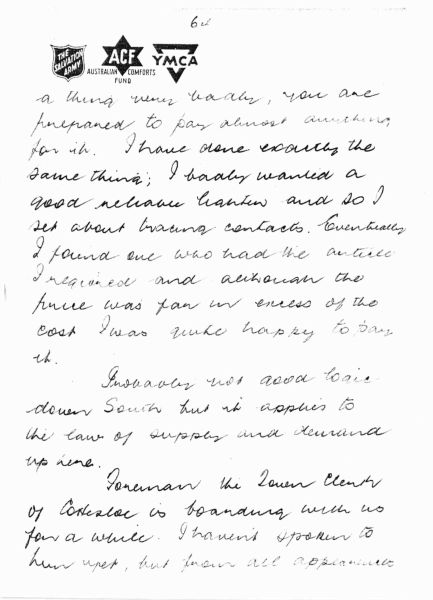 6
THE SALVATION ARMY
ACF
AUSTRALIAN COMFORTS FUND
YMCA
a thing very badly, you are
prepared to pay almost anything
for it. I have done exactly the
same thing; I badly wanted a
good reliable lighter and so I
set about tracing contacts. Eventually
I found one who had the article
I required and although the
price was far in excess of the
cost I was quite happy to pay
it.
Probably not good logic
down South but it applies to
the law of supply and demand
up here.
Foreman the Town Clerk
of Cottesloe is boarding with us
for a while. I haven't spoken to
him yet, but from all appearances